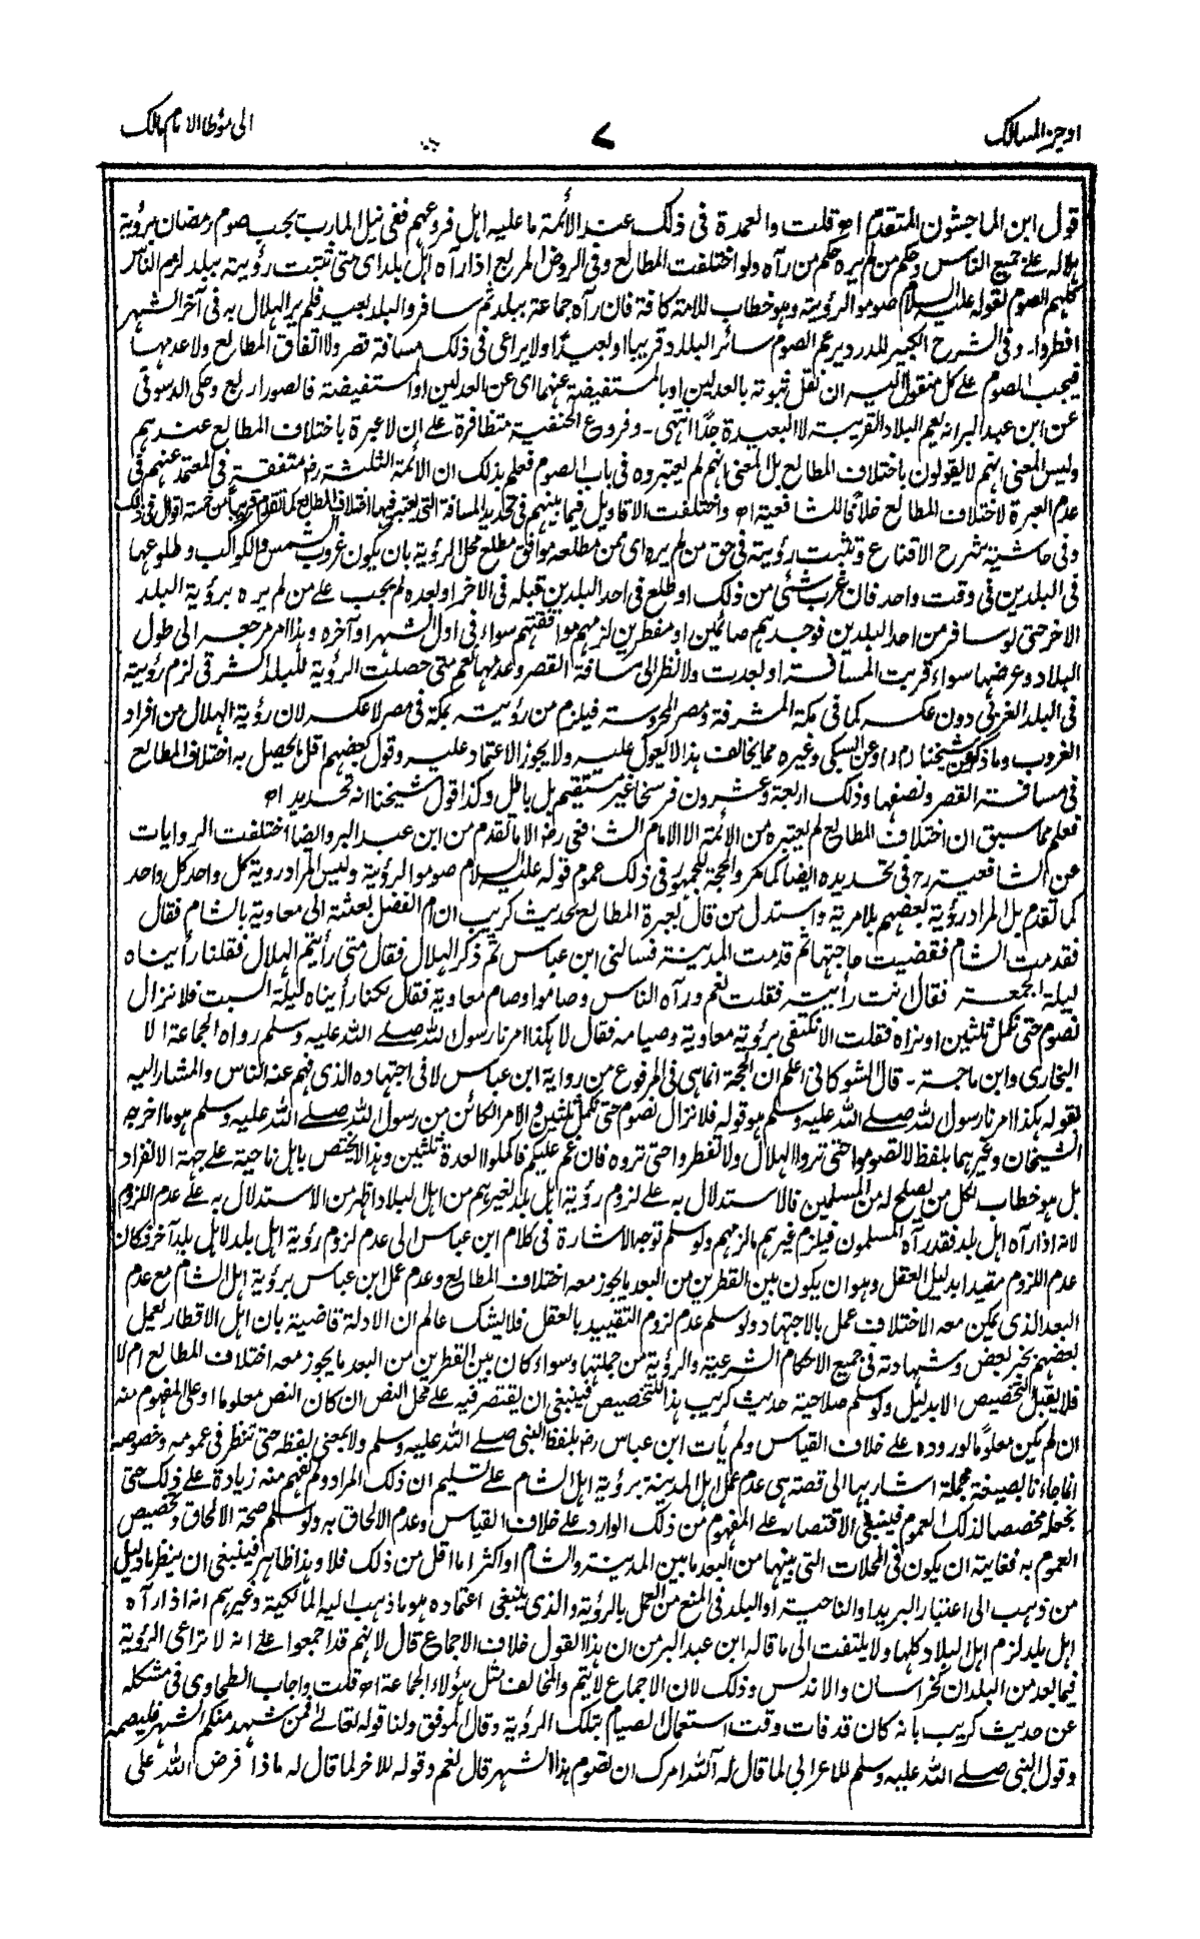 اوجز المسالك
٧
الى مؤطا الامام مالك
قول ابن الماجشون المتقدم اھ قلت والعمدة فى ذلك عند الأئمة ما عليه اهل فروعهم ففى نيل المارب يجب صوم رمضان برؤية
هلاله على جميع الناس وحكم من لم يره حكم من رآه ولو اختلفت المطالع وفى الروض المربع اذا رآه اهل بلد اى متى ثبتت رؤيته ببلد لزم الناس
كلهم الصوم لقوله عليه السلام صوموا لرؤيته وهو خطاب للامة كافة فان رآه جماعة ببلد ثم سافروا لبلد بعيد فلم ير الهلال به فى آخر الشهر
افطروا۔ وفى الشرح الكبير للدردير عم الصوم سائر البلاد قريبا او بعيدًا ولا يراعى فى ذلك مسافة قصر ولا اتفاق المطالع ولا عدمها
فيجب الصوم على كل منقول اليه ان نقل ثبوته بالعدلين او بالمستفيضة عنهما اى عن العدلين او المستفيضة فالصور اربع وحكى الدسوقى
عن ابن عبد البر انه يعم البلاد القريبة لا البعيدة جدًا انتهى۔ وفروع الحنفية متظافرة على ان لا عبرة باختلاف المطالع عندهم
وليس المعنى انهم لا يقولون باختلاف المطالع بل المعنى انهم لم يعتبروه فى باب الصوم فعلم بذلك ان الأئمة الثلثة رض متفقة فى المعتمد عنهم فى
عدم العبرة لاختلاف المطالع خلافًا للشافعية اھ واختلفت الاقاويل فيما بينهم فى تحديد المسافة التى يعتبر فيها اختلاف المطالع كما تقدم قريبًا من خمسة اقوال فى ذلك
وفى حاشية شرح الاقناع وتثبت رؤيته فى حق من لم يره اى ممن مطلعه موافق مطلع محل الرؤية بان يكون غروب الشمس والكواكب وطلوعها
فى البلدين فى وقت واحد فان غرب شئ من ذلك او طلع فى احد البلدين قبله فى الاخر او بعده لم يجب على من لم يره برؤية البلد
الاخر حتى لو سافر من احد البلدين فوجدهم صائمين او مفطرين لزمهم موافقتهم سواء فى اول الشهر او آخره وهذا امر مرجعه الى طول
البلاد وعرضها سواء قربت المسافة او بعدت ولا نظر الى مسافة القصر وعدمها نعم متى حصلت الرؤية للبلد الشرقى لزم رؤيته
فى البلد الغربى دون عكسه كما فى مكة المشرفة ومصر المحروسة فيلزم من رؤيته بمكة فى مصر لا عكسه لان رؤية الهلال من افراد
الغروب وما ذكره شيخنا (م ر) وعن السبكى وغيره مما يخالف هذا لا يعول عليه ولا يجوز الاعتماد عليه وقول بعضهم اقل ما يحصل به اختلاف المطالع
فى مسافة القصر ونصفها وذلك اربعة وعشرون فرسخا غير مستقيم بل باطل وكذا قول شيخنا انه تحديد اھ
فعلم مما سبق ان اختلاف المطالع لم يعتبره من الأئمة الا الامام الشافعى رض الا ما تقدم من ابن عبد البر وايضًا اختلفت الروايات
عن الشافعية رح فى تحديده ايضًا كما مر والحجة للجمهور فى ذلك عموم قوله عليه السلام صوموا لرؤيته وليس المراد روية كل واحد كل واحد
كما تقدم بل المراد رؤية بعضهم بلا مرية واستدل من قال بعبرة المطالع بحديث كريب ان ام الفضل بعثته الى معاوية بالشام فقال
فقدمت الشام فقضيت حاجتها ثم قدمت المدينة فسالنى ابن عباس ثم ذكر الهلال فقال متى رأيتم الهلال فقلنا رأيناه
ليلة الجمعة فقال انت رأيته فقلت نعم ورآه الناس وصاموا وصام معاوية فقال لكنا رأيناه ليلة السبت فلا نزال
نصوم حتى نكمل ثلثين او نراه فقلت الا نكتفى برؤية معاوية وصيامه فقال لا هكذا امرنا رسول الله صلى الله عليه وسلم رواه الجماعة الا
البخارى وابن ماجة۔ قال الشوكانى اعلم ان الحجة انما هى فى المرفوع من رواية ابن عباس لا فى اجتهاده الذى فهم عنه الناس والمشار اليه
بقوله هكذا امرنا رسول الله صلى الله عليه وسلم هو قوله فلا نزال نصوم حتى نكمل ثلثين والامر الكائن من رسول الله صلى الله عليه وسلم هو ما اخرجه
الشيخان وغيرهما بلفظ لا تصوموا حتى تروا الهلال ولا تفطروا حتى تروه فان غم عليكم فاكملوا العدة ثلثين وهذا لا يختص باهل ناحية على جهة الانفراد
بل هو خطاب لكل من يصلح له من المسلمين فالاستدلال به على لزوم رؤية اهل بلد لغيرهم من اهل البلاد اظهر من الاستدلال به على عدم اللزوم
لانه اذا رآه اهل بلد فقد رآه المسلمون فيلزم غيرهم ما لزمهم ولو سلم توجه الاشارة فى كلام ابن عباس الى عدم لزوم رؤية اهل بلد لاهل بلد آخر فكان
عدم اللزوم مقيدا بدليل العقل وهو ان يكون بين القطرين من البعد ما يجوز معه اختلاف المطالع وعدم عمل ابن عباس برؤية اهل الشام مع عدم
البعد الذى يمكن معه الاختلاف عمل بالاجتهاد ولو سلم عدم لزوم التقييد بالعقل فلا يشك عالم ان الادلة قاضية بان اهل الاقطار يعمل
بعضهم بخبر بعض وشهادته فى جميع الاحكام الشرعية والرؤية من جملتها وسواء كان بين القطرين من البعد ما يجوز معه اختلاف المطالع ام لا
فلا يقبل التخصيص الا بدليل ولو سلم صلاحية حديث كريب هذا للتخصيص فينبغى ان يقتصر فيه على محل النص ان كان النص معلوما او على المفهوم منه
ان لم يكن معلوما لوروده على خلاف القياس ولم يأت ابن عباس رض بلفظ النبى صلى الله عليه وسلم ولا بمعنى لفظه حتى ننظر فى عمومه وخصوصه
انما جاءنا بصيغة مجملة اشار بها الى قصة هى عدم عمل اهل المدينة برؤية اهل الشام على تسليم ان ذلك المراد ولم نفهم منه زيادة على ذلك حتى
نجعله مخصصا لذلك العموم فينبغى الاقتصار على المفهوم من ذلك الوارد على خلاف القياس وعدم الالحاق به ولو سلم صحة الالحاق وتخصيص
العموم به فغايته ان يكون فى المحلات التى بينها من البعد ما بين المدينة والشام او اكثر اما اقل من ذلك فلا وهذا ظاهر فينبغى ان ينظر ما دليل
من ذهب الى اعتبار البريد او الناحية او البلد فى المنع من العمل بالرؤية والذى ينبغى اعتماده هو ما ذهب اليه المالكية وغيرهم انه اذا رآه
اهل بلد لزم اهل البلاد كلها ولا يلتفت الى ما قاله ابن عبد البر من ان هذا القول خلاف الاجماع قال لانهم قد اجمعوا على انه لا تراعى الرؤية
فيما بعد من البلدان كخراسان والاندلس وذلك لان الاجماع لا يتم والمخالف مثل هؤلاء الجماعة اھ قلت واجاب الطحاوى فى مشكله
عن حديث كريب بانه كان قد فات وقت استعمال الصيام بتلك الرؤية وقال الموفق ولنا قوله تعالى فمن شهد منكم الشهر فليصمه
وقول النبى صلى الله عليه وسلم للاعرابى لما قال له آلله امرك ان تصوم هذا الشهر قال نعم وقوله للاخر لما قال له ماذا فرض الله على